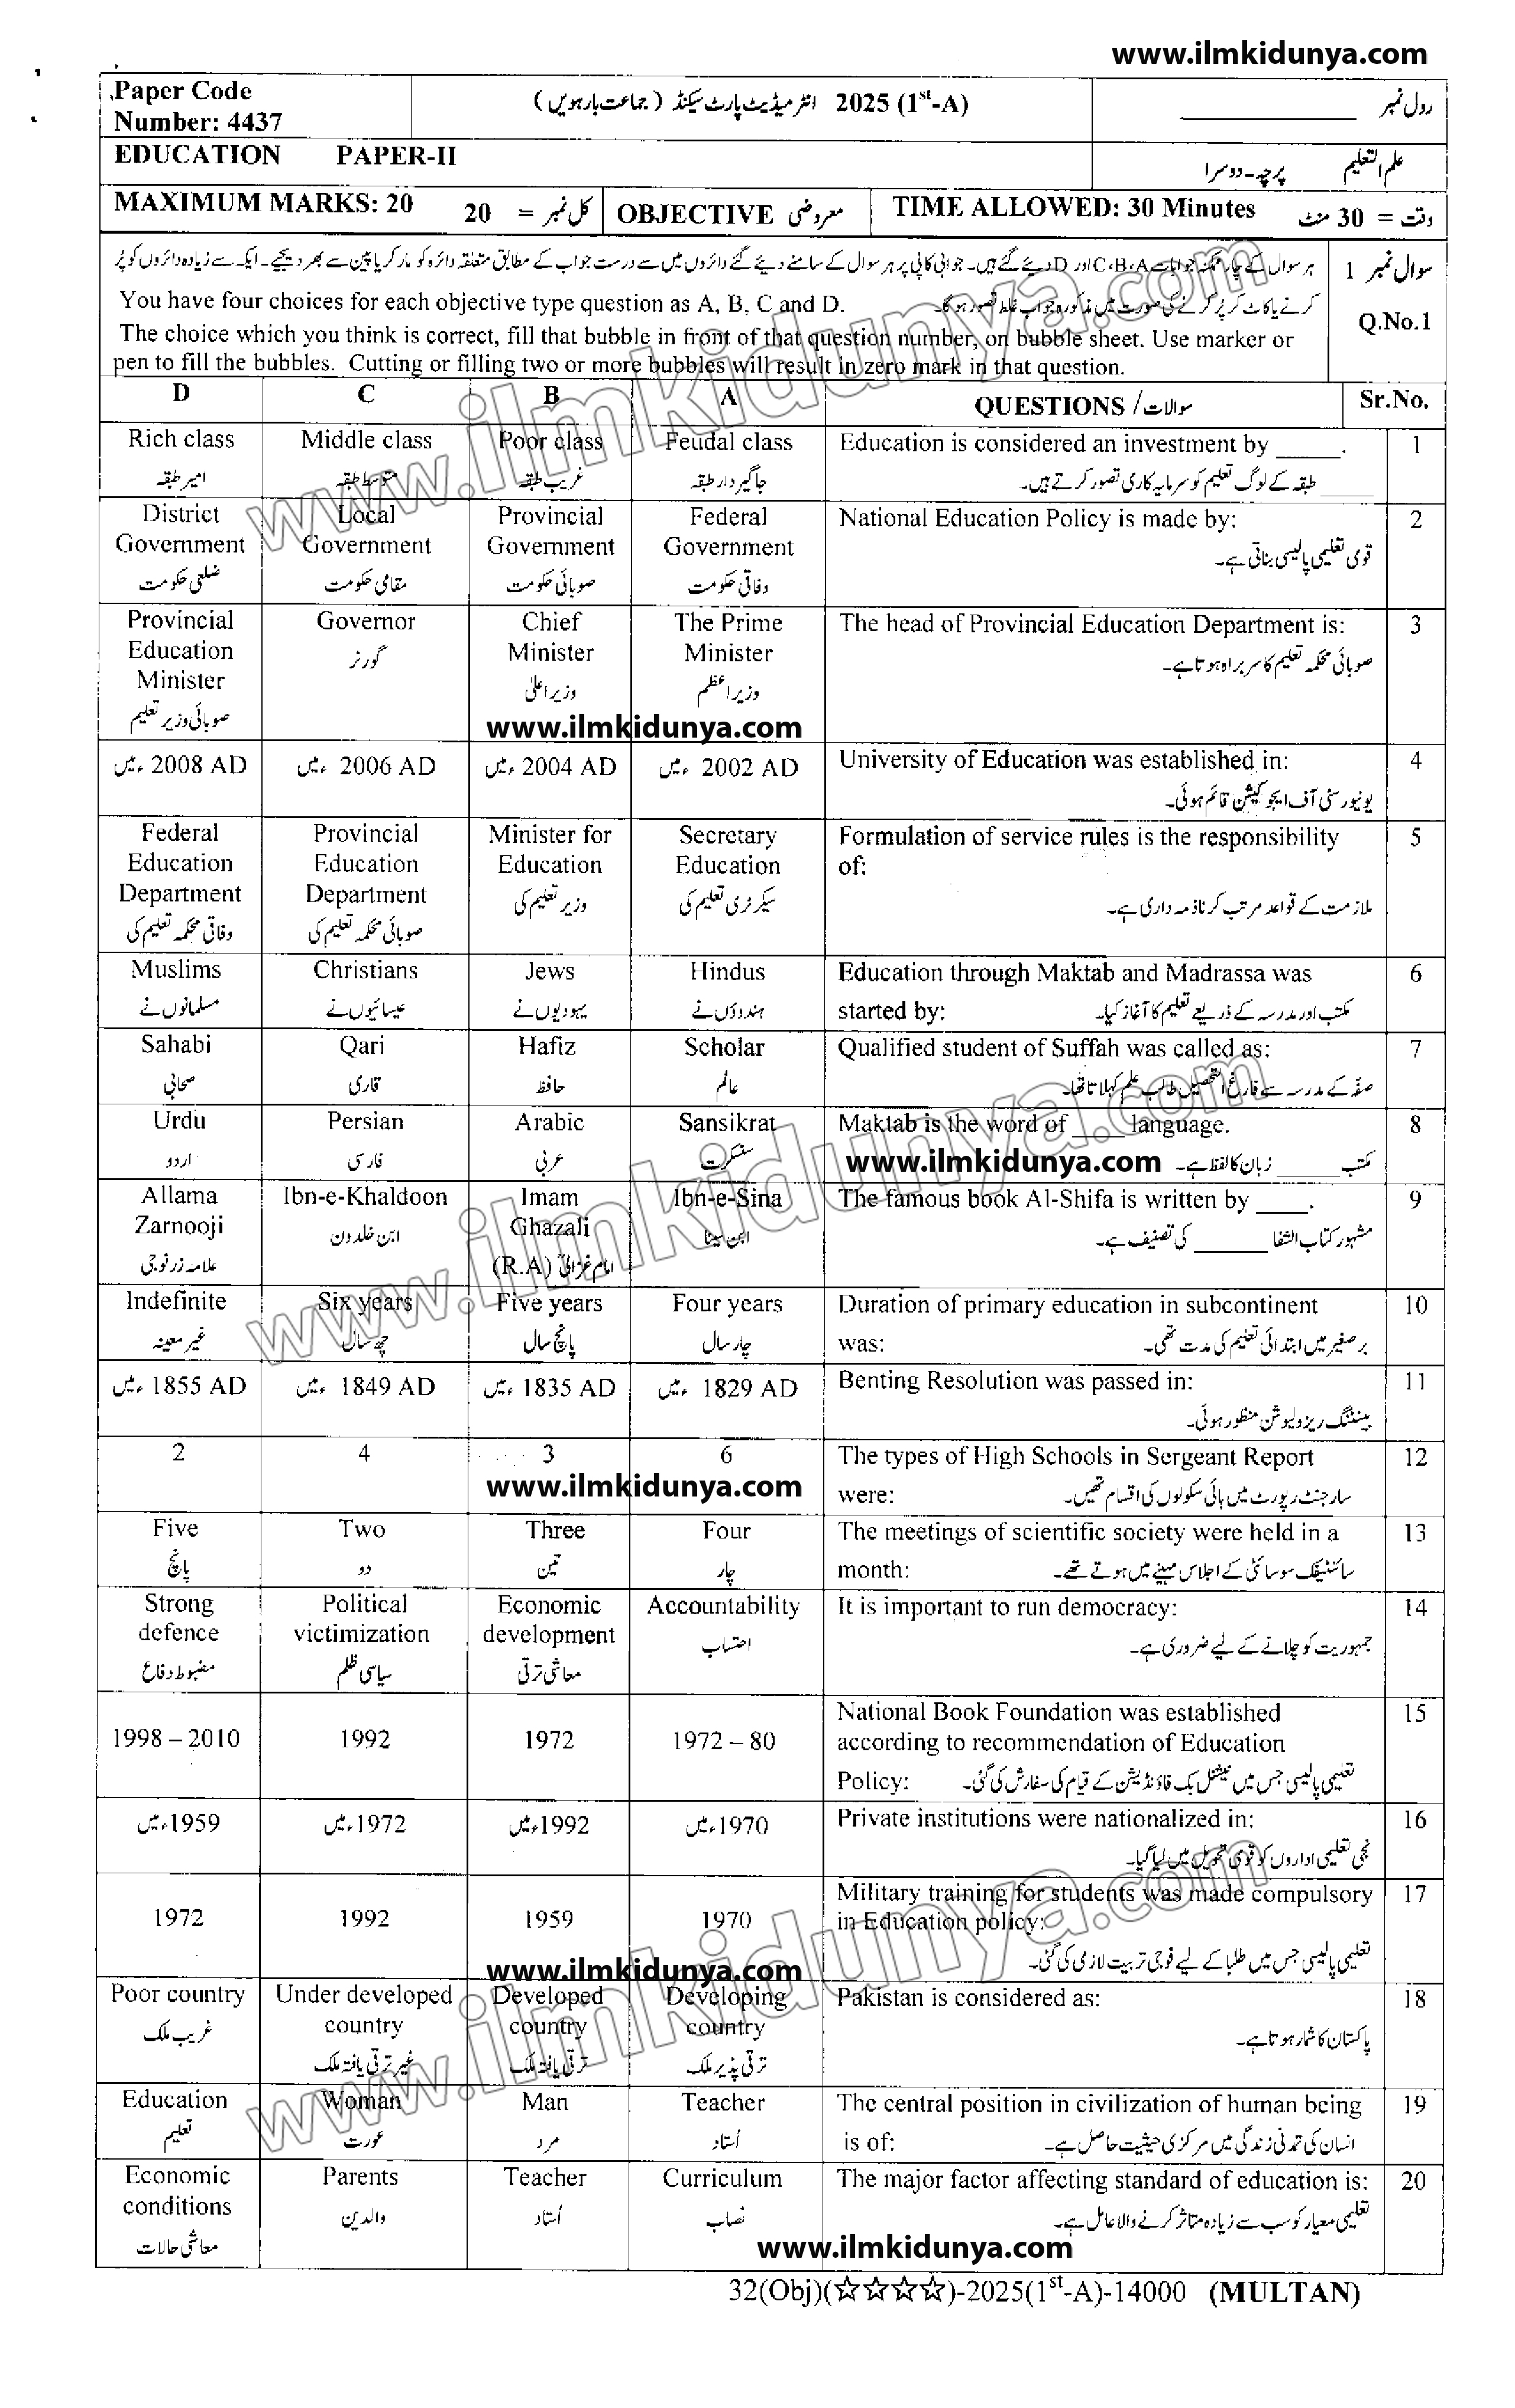 www.ilmkidunya.com
Paper Code
Number: 4437
2025 (1st-A) انٹرمیڈیٹ پارٹ سیکنڈ (جماعت بارہویں)
رول نمبر ____________
EDUCATION PAPER-II
علم التعلیم پرچہ-دوسرا
MAXIMUM MARKS: 20 کل نمبر = 20
OBJECTIVE معروضی
TIME ALLOWED: 30 Minutes وقت = 30 منٹ
سوال نمبر 1 ہر سوال کے چار ممکنہ جوابات C،B،A اور D دیئے گئے ہیں۔ جوابی کاپی پر ہر سوال کے سامنے دیئے گئے دائروں میں سے درست جواب کے مطابق متعلقہ دائرہ کو مارکر یا پین سے بھر دیجئے۔ ایک سے زیادہ دائروں کو پُر
کرنے یا کاٹ کر پُر کرنے کی صورت میں مذکورہ جواب غلط تصور ہو گا۔
Q.No.1 You have four choices for each objective type question as A, B, C and D.
The choice which you think is correct, fill that bubble in front of that question number, on bubble sheet. Use marker or
pen to fill the bubbles. Cutting or filling two or more bubbles will result in zero mark in that question.
D C B A QUESTIONS / سوالات Sr.No.
Rich class Middle class Poor class Feudal class Education is considered an investment by _____. 1
امیر طبقہ متوسط طبقہ غریب طبقہ جاگیردار طبقہ _____ طبقہ کے لوگ تعلیم کو سرمایہ کاری تصور کرتے ہیں۔
District Local Provincial Federal National Education Policy is made by: 2
Government Government Government Government
ضلعی حکومت مقامی حکومت صوبائی حکومت وفاقی حکومت قومی تعلیمی پالیسی بناتی ہے۔
Provincial Governor Chief The Prime The head of Provincial Education Department is: 3
Education گورنر Minister Minister صوبائی محکمہ تعلیم کا سربراہ ہوتا ہے۔
Minister وزیراعلیٰ وزیراعظم
صوبائی وزیر تعلیم
www.ilmkidunya.com
2008 AD ء میں 2006 AD ء میں 2004 AD ء میں 2002 AD ء میں University of Education was established in: 4
یونیورسٹی آف ایجوکیشن قائم ہوئی۔
Federal Provincial Minister for Secretary Formulation of service rules is the responsibility 5
Education Education Education Education of:
Department Department وزیر تعلیم کی سیکرٹری تعلیم کی ملازمت کے قواعد مرتب کرنا ذمہ داری ہے۔
وفاقی محکمہ تعلیم کی صوبائی محکمہ تعلیم کی
Muslims Christians Jews Hindus Education through Maktab and Madrassa was 6
مسلمانوں نے عیسائیوں نے یہودیوں نے ہندوؤں نے started by: مکتب اور مدرسہ کے ذریعے تعلیم کا آغاز کیا۔
Sahabi Qari Hafiz Scholar Qualified student of Suffah was called as: 7
صحابی قاری حافظ عالم صفہ کے مدرسہ سے فارغ التحصیل طالب علم کہلاتا تھا۔
Urdu Persian Arabic Sansikrat Maktab is the word of ____ language. 8
اردو فارسی عربی سنسکرت www.ilmkidunya.com مکتب _____ زبان کا لفظ ہے۔
Allama Ibn-e-Khaldoon Imam Ibn-e-Sina The famous book Al-Shifa is written by ____. 9
Zarnooji ابن خلدون Ghazali ابن سینا مشہور کتاب الشفا ______ کی تصنیف ہے۔
علامہ زرنوجی (R.A) امام غزالیؒ
Indefinite Six years Five years Four years Duration of primary education in subcontinent 10
غیر معینہ چھ سال پانچ سال چار سال was: برصغیر میں ابتدائی تعلیم کی مدت تھی۔
1855 AD ء میں 1849 AD ء میں 1835 AD ء میں 1829 AD ء میں Benting Resolution was passed in: 11
بینٹنگ ریزولیوشن منظور ہوئی۔
2 4 3 6 The types of High Schools in Sergeant Report 12
www.ilmkidunya.com were: سارجنٹ رپورٹ میں ہائی سکولوں کی اقسام تھیں۔
Five Two Three Four The meetings of scientific society were held in a 13
پانچ دو تین چار month: سائنٹیفک سوسائٹی کے اجلاس مہینے میں ہوتے تھے۔
Strong Political Economic Accountability It is important to run democracy: 14
defence victimization development احتساب جمہوریت کو چلانے کے لیے ضروری ہے۔
مضبوط دفاع سیاسی ظلم معاشی ترقی
National Book Foundation was established 15
1998 – 2010 1992 1972 1972 – 80 according to recommendation of Education
Policy: تعلیمی پالیسی جس میں نیشنل بک فاؤنڈیشن کے قیام کی سفارش کی گئی۔
1959ء میں 1972ء میں 1992ء میں 1970ء میں Private institutions were nationalized in: 16
نجی تعلیمی اداروں کو قومی تحویل میں لیا گیا۔
Military training for students was made compulsory 17
1972 1992 1959 1970 in Education policy:
تعلیمی پالیسی جس میں طلبا کے لیے فوجی تربیت لازمی کی گئی۔
www.ilmkidunya.com
Poor country Under developed Developed Developing Pakistan is considered as: 18
غریب ملک country country country پاکستان کا شمار ہوتا ہے۔
غیر ترقی یافتہ ملک ترقی یافتہ ملک ترقی پذیر ملک
Education Woman Man Teacher The central position in civilization of human being 19
تعلیم عورت مرد اُستاد is of: انسان کی تمدنی زندگی میں مرکزی حیثیت حاصل ہے۔
Economic Parents Teacher Curriculum The major factor affecting standard of education is: 20
conditions والدین اُستاد نصاب تعلیمی معیار کو سب سے زیادہ متاثر کرنے والا عامل ہے۔
معاشی حالات
www.ilmkidunya.com
32(Obj)(☆☆☆☆)-2025(1st-A)-14000 (MULTAN)
www.ilmkidunya.com
www.ilmkidunya.com
www.ilmkidunya.com